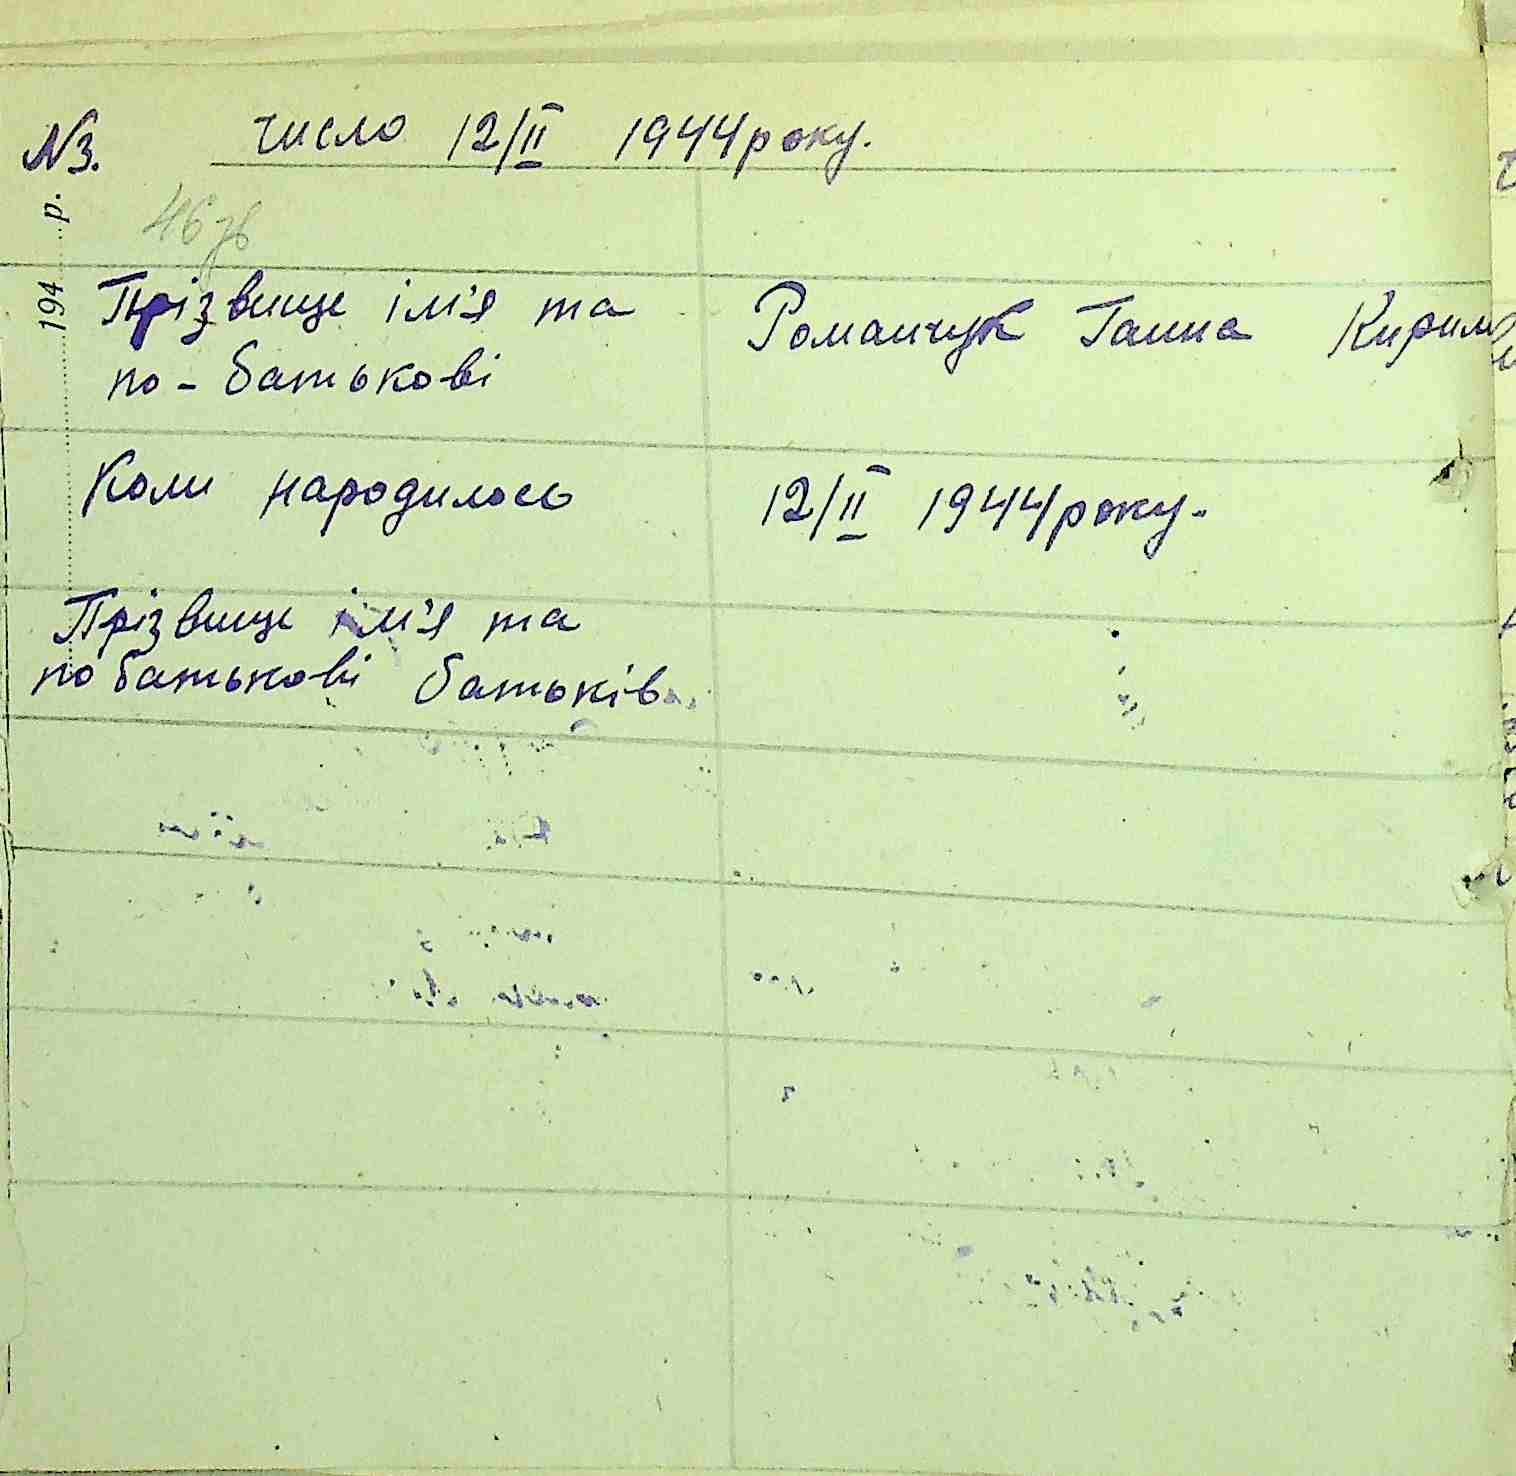 N3. число 12/II 1944 року.
194 р.
46 зв
Прізвище ім'я та Романчук Ганна
по-батькові
Коли народилось 12/II 1944 року.
Прізвище ім'я та
по батькові батьків